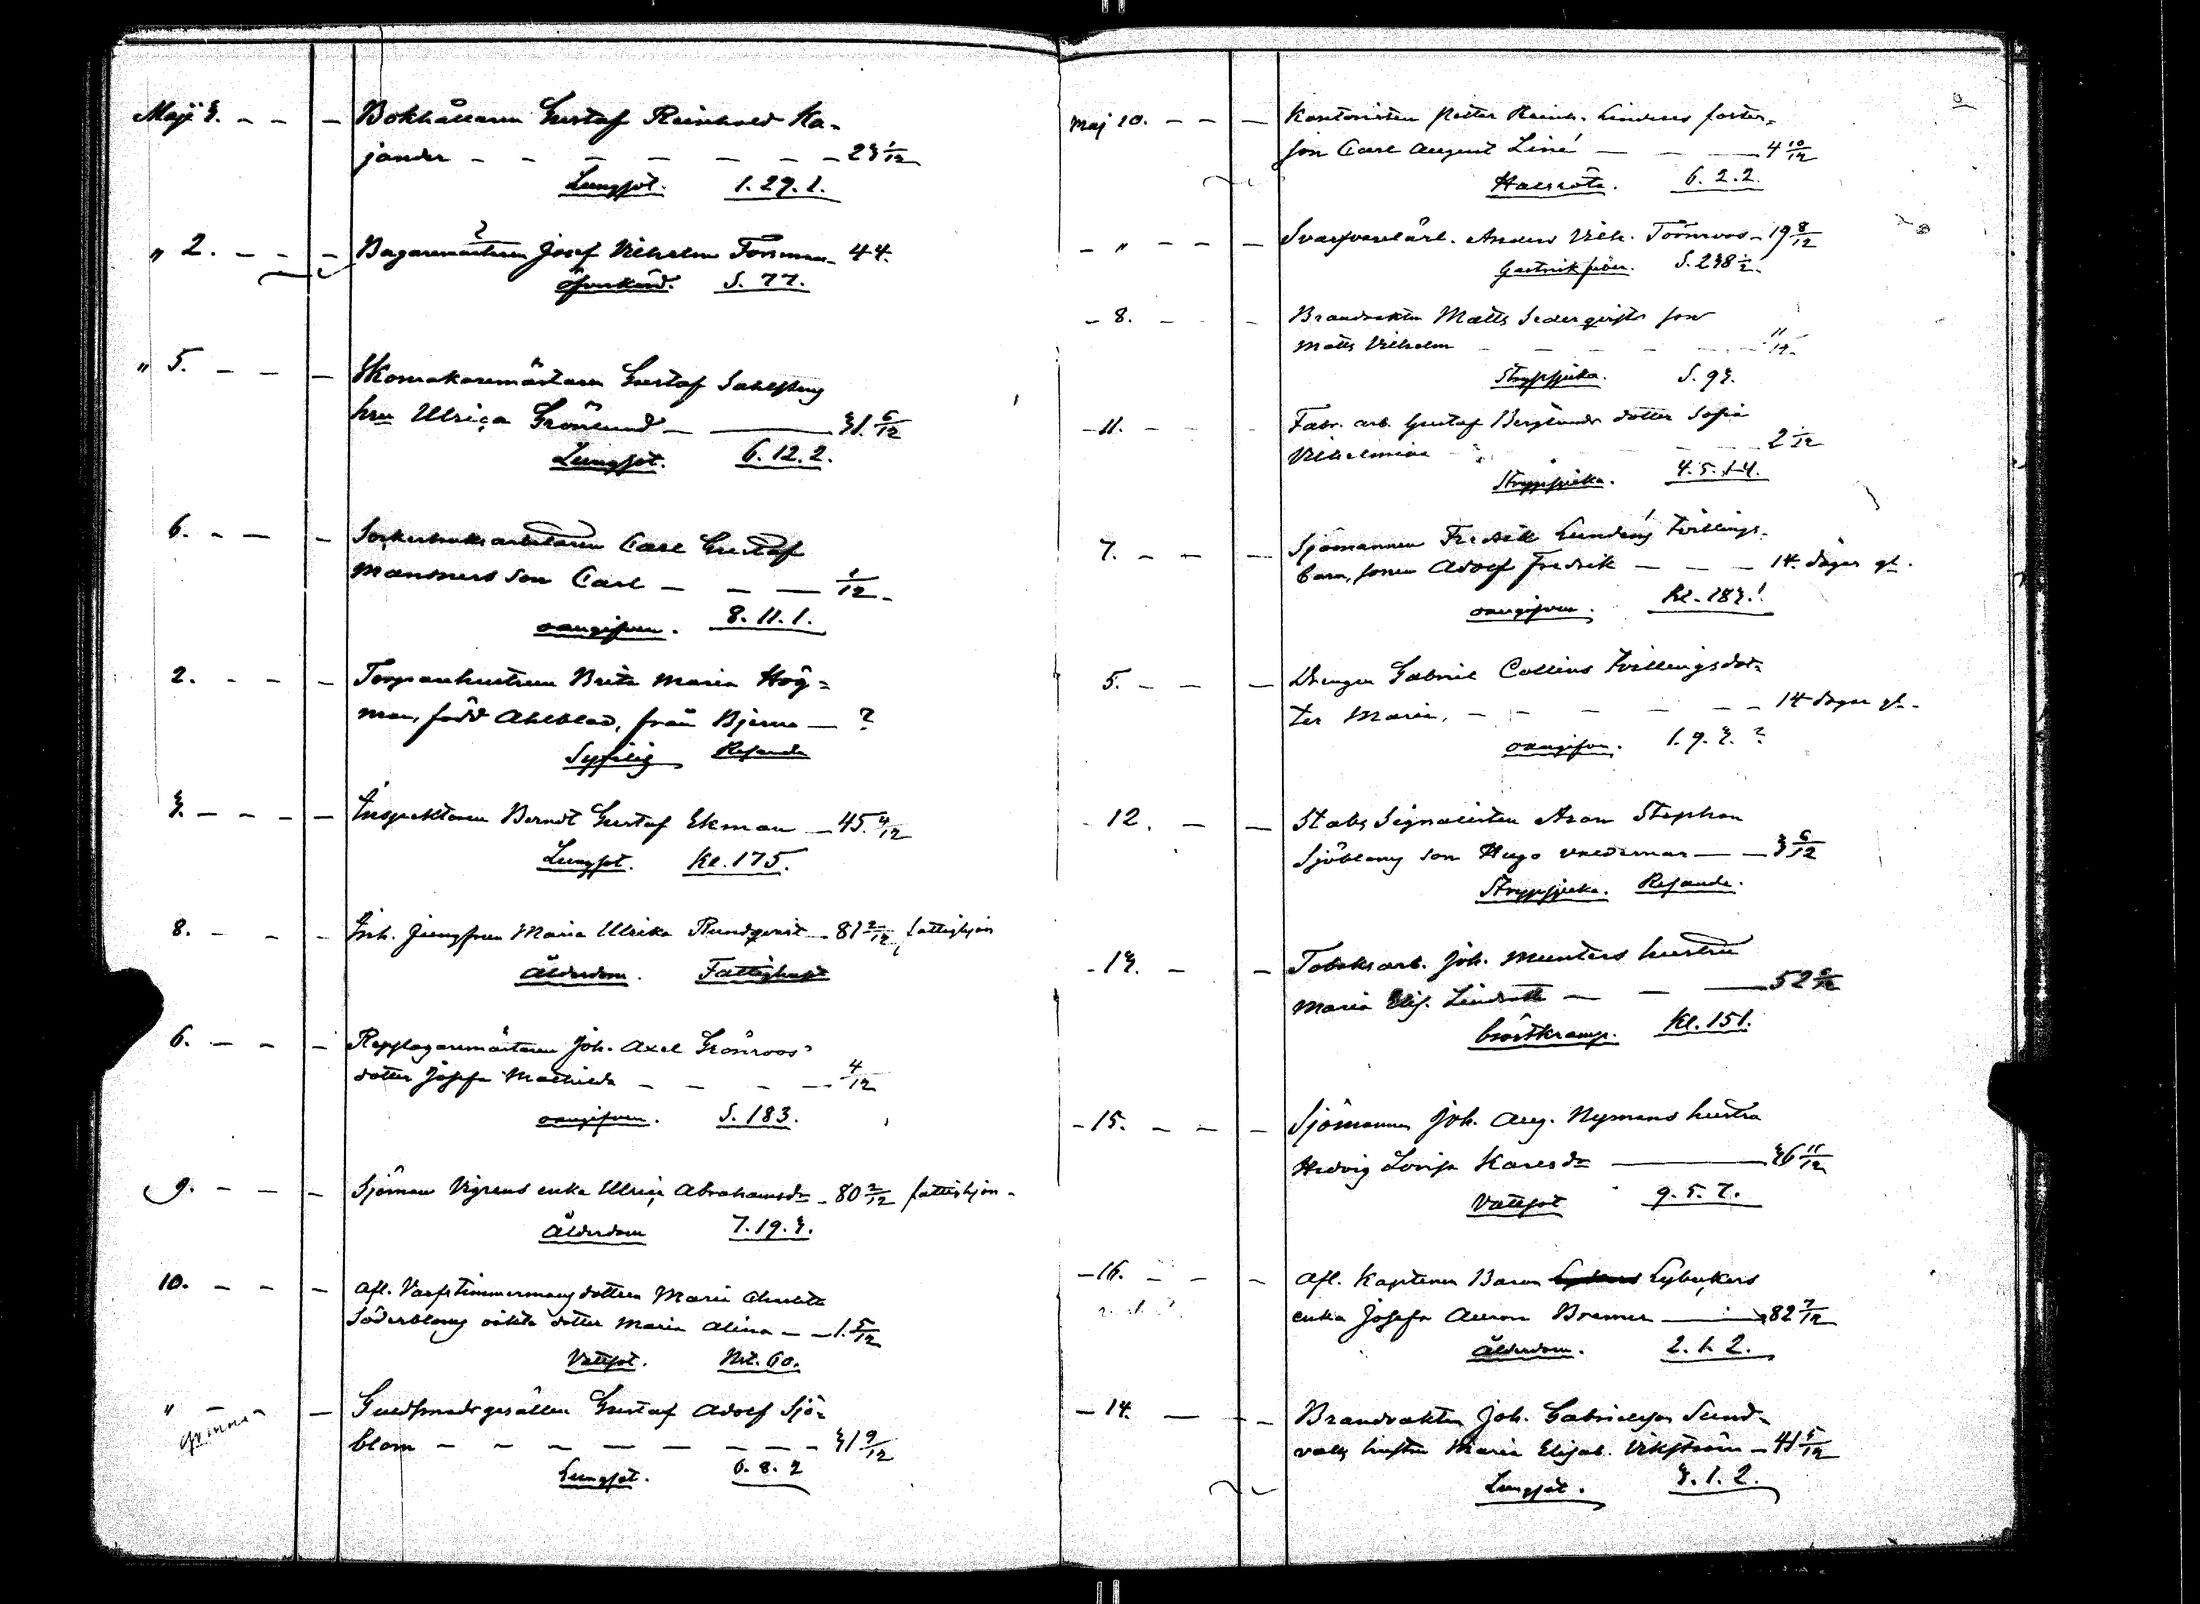 Maji 3. - - - Bokhållaren Gustaf Reinhold Ka-
jander - - - - - - - 23 1/12
Lungsot. 1.29.1.
" 2. - - - Bagaremästaren Josef Vilhelm Forsman - 44.
?
öfverkörd. S. 77.
" 5. - - - Skomakaremästaren Gustaf Sahlstens
hru Ulrica Grönlund - 31 6/12
Lungsot. 6.12.2.
6. - - - Sockerbruksarbetaren Carl Gustaf
Mansners son Carl - - - 1/12 -
oangifven. 8.11.1.
2. - - - Torparehustrun Brita Maria Hög-
man, född Ahlblad, från Bjerno - ?
Syfilis Resande
3. - - - - Inspektoren Berndt Gustaf Ekman - 45 4/12
Lungsot. Kl. 175.
8. - - - Inh. jungfrun Maria Ulrika Rundqvist - 81 2/12 fattighjon
Ålderdom. Fattighuset
6. - - - Repslagaremästaren Joh. Axel Grönroos
dotter Josefa Mathilda - - - - 4/12
oangifven. S. 183.
9. - - - - Sjöman Vigrens enka Ulrica Abrahamsdr - 80 2/12 fattighjon -
Ålderdom 7.19.3.
10. - - - Afl. Varfstimmermans dottern Maria Charlotta
Söderbloms oäkta dotter Maria Alina - - 1 5/12
Vattsot. Nrt. 60.
" - - - Guldsmedsgesällen Gustaf Adolf Sjö-
blom - - - - - - - - 31 9/12
Lungsot. 6.8.2
Maj 10. - - - Kantoristen Petter Reinh. Linders foster-
son Carl August Liné - - - 4 10/12
Halsröta. 6.2.2.
- " - - - Svarfvarelärl. Anders Vilh. Törnroos - 19 8/12
Gastrisk feber. S. 238 1/2.
- 8. - - Brandvakten Matts Sederqvists son
Matts Vilhelm - - - - - - 11/12
Strypsjuka. S. 93.
- 11. - - - Fabr. arb. Gustaf Berglunds dotter Sofia
Vilhelmina - - - 2 1/12
Strypsjuka. 4.5.14.
7. - - - Sjömannen Fredrik Lundens tvillings-
barn, sonen Adolf Fredrik - - - 14 dagar gl.
oangifven. Kl. 183.
5. - - - Drengen Gabriel Collins tvillingsdot-
ter Maria. - - - - - - 14 dagar gl.
oangifven. 1.9.3. ?
- 12. - - Stabs Signalisten Aron Stephan
Sjöbloms son Hugo Valdemar - - 3 6/12
Strypsjuka. Resande.
- 13. - - Tobaksarb. Joh. Munters hustru
Maria Elis. Lindroth - - - 52
bröstkramp. Kl. 151.
- 15. - - - Sjömannen Joh. Aug. Nymans hustru
Hedvig Lovisa Karlsdr - 36 11/12
Vattsot 9.5.7.
- 16. - - - Afl. Kaptenen Baron Lybeckers
enka Josefa Aurora Bremer - 82 7/12
Ålderdom. 2.1.2.
- 14. - - - Brandvakten Joh. Gabrielsson Sund-
valls hustru Maria Elisab. Vikström - 41 5/12
Lungsot. 3.1.2.